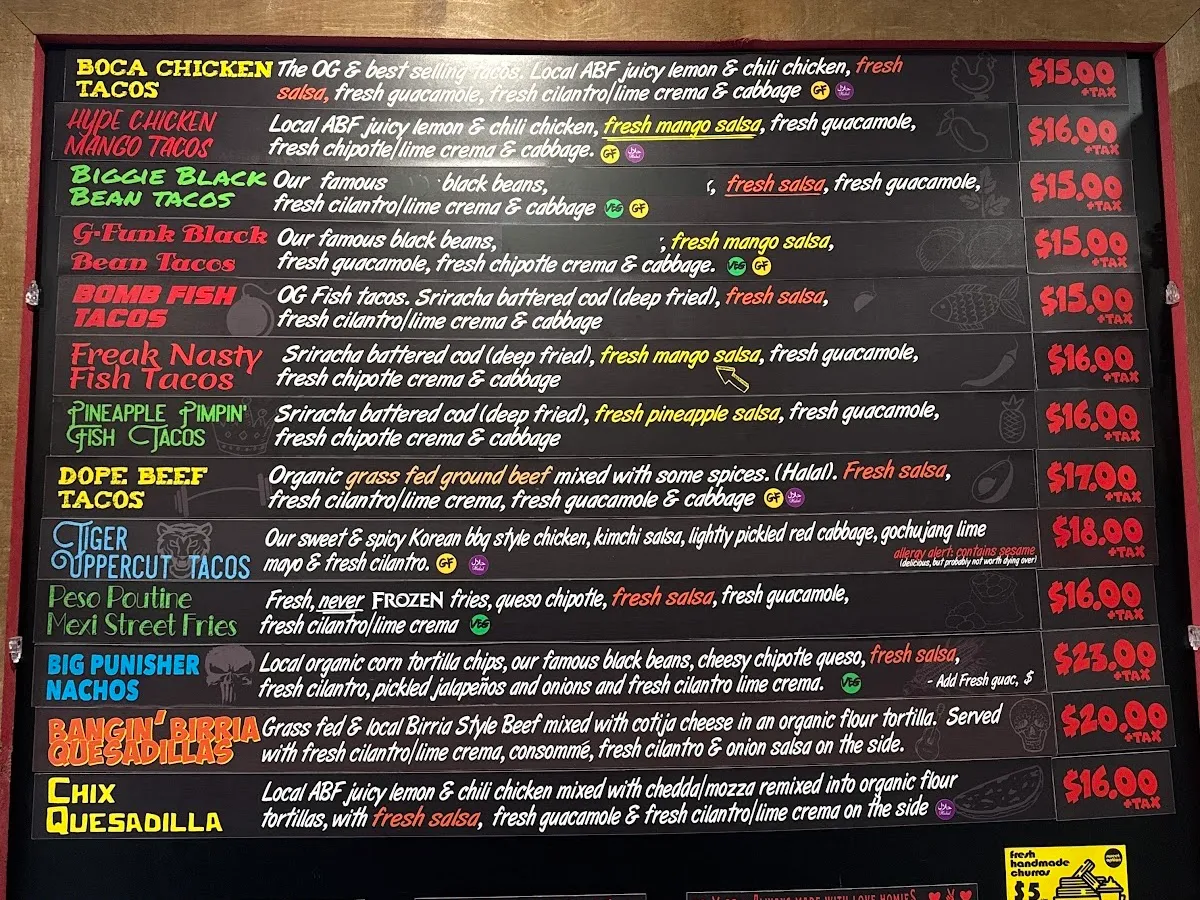 BOCA CHICKEN TACOS
The OG & best selling tacos. Local ABF juicy lemon & chili chicken, fresh
salsa, fresh guacamole, fresh cilantro/lime crema & cabbage GF
$15.00
+TAX
HYPE CHICKEN MANGO TACOS
Local ABF juicy lemon & chili chicken, fresh mango salsa, fresh guacamole,
fresh chipotle/lime crema & cabbage. GF
$16.00
+TAX
BIGGIE BLACK BEAN TACOS
Our famous black beans, fresh salsa, fresh guacamole,
fresh cilantro/lime crema & cabbage VEG GF
$15.00
+TAX
G-Funk Black Bean Tacos
Our famous black beans, fresh mango salsa,
fresh guacamole, fresh chipotle crema & cabbage. VEG GF
$15.00
+TAX
BOMB FISH TACOS
OG Fish tacos. Sriracha battered cod (deep fried), fresh salsa,
fresh cilantro/lime crema & cabbage
$15.00
+TAX
Freak Nasty Fish Tacos
Sriracha battered cod (deep fried), fresh mango salsa, fresh guacamole,
fresh chipotle crema & cabbage
$16.00
+TAX
PINEAPPLE PIMPIN' FISH TACOS
Sriracha battered cod (deep fried), fresh pineapple salsa, fresh guacamole,
fresh chipotle crema & cabbage
$16.00
+TAX
DOPE BEEF TACOS
Organic grass fed ground beef mixed with some spices. (Halal). Fresh salsa,
fresh cilantro/lime crema, fresh guacamole & cabbage GF
$17.00
+TAX
TIGER UPPERCUT TACOS
Our sweet & spicy Korean bbq style chicken, kimchi salsa, lightly pickled red cabbage, gochujang lime
mayo & fresh cilantro. GF
allergy alert: contains sesame
(delicious, but probably not worth dying over)
$18.00
+TAX
Peso Poutine Mexi Street Fries
Fresh, never FROZEN fries, queso chipotle, fresh salsa, fresh guacamole,
fresh cilantro/lime crema VEG
$16.00
+TAX
BIG PUNISHER NACHOS
Local organic corn tortilla chips, our famous black beans, cheesy chipotle queso, fresh salsa,
fresh cilantro, pickled jalapeños and onions and fresh cilantro lime crema. VEG
- Add Fresh guac, $
$23.00
+TAX
BANGIN' BIRRIA QUESADILLAS
Grass fed & local Birria Style Beef mixed with cotija cheese in an organic flour tortilla. Served
with fresh cilantro/lime crema, consommé, fresh cilantro & onion salsa on the side.
$20.00
+TAX
CHIX QUESADILLA
Local ABF juicy lemon & chili chicken mixed with chedda/mozza remixed into organic flour
tortillas, with fresh salsa, fresh guacamole & fresh cilantro/lime crema on the side
$16.00
+TAX
fresh
handmade
churros
$5
ALWAYS MADE WITH LOVE HOMIES